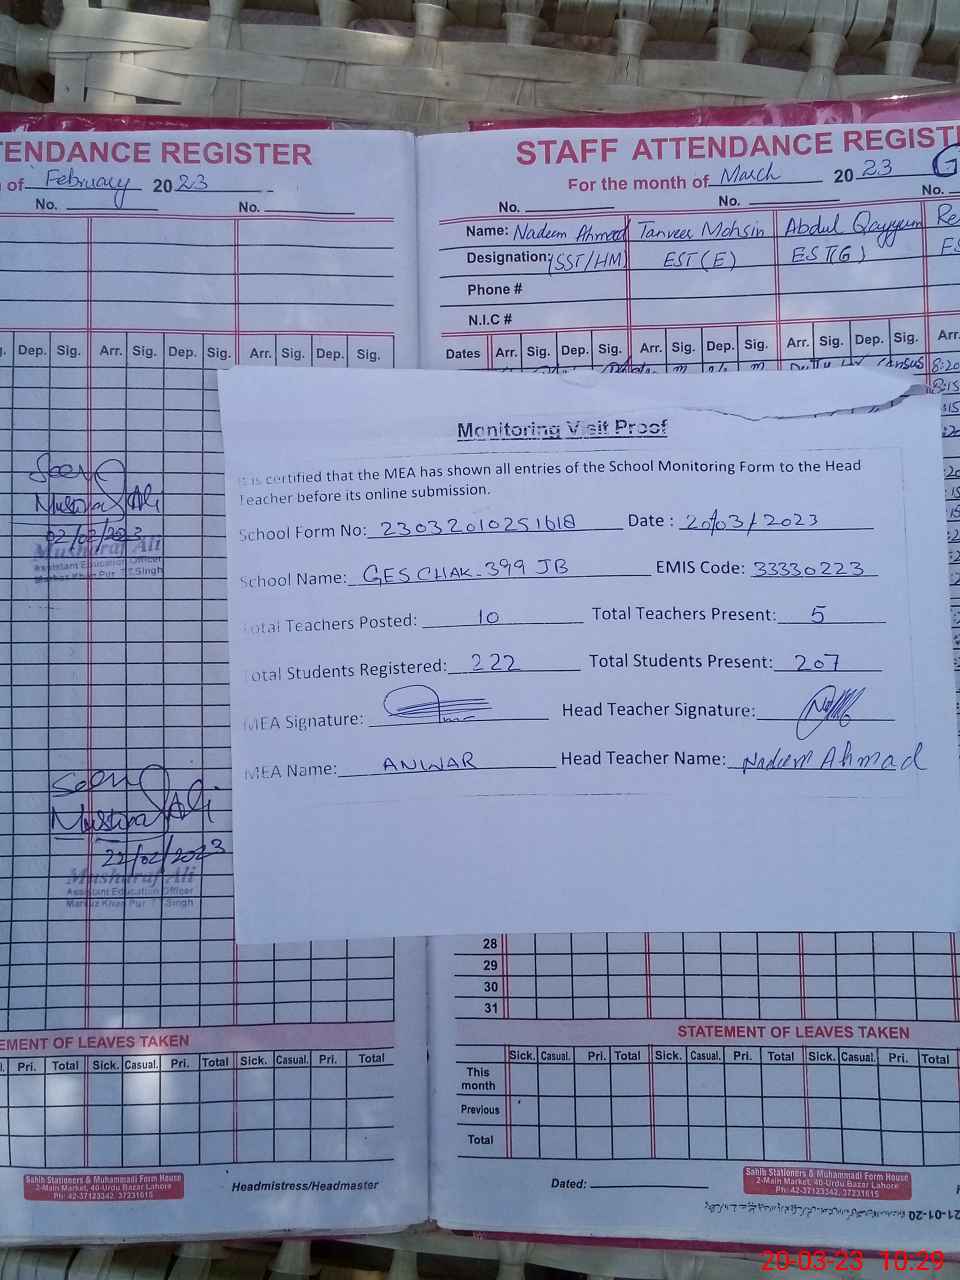 TENDANCE REGISTER
of February 2023
No. No.
Dep. Sig. Arr. Sig. Dep. Sig. Arr. Sig. Dep. Sig.
Seen
02/02/2023
Musharaf Ali
Assistant Education Officer
Markaz Khan Pur T.T.Singh
Seen
22/02/2023
Musharaf Ali
Assistant Education Officer
Markaz Khan Pur T.T.Singh
EMENT OF LEAVES TAKEN
Pri. Total Sick. Casual. Pri. Total Sick. Casual. Pri. Total
Sahib Stationers & Muhammadi Form House
2-Main Market, 40-Urdu Bazar Lahore
Ph: 42-37123342, 37231615
Headmistress/Headmaster
STAFF ATTENDANCE REGIST
For the month of March 2023
No. No. No.
Name: Nadeem Ahmad Tanveer Mohsin Abdul Qayyum Re
Designation: (SST/HM) EST(E) EST(G) ES
Phone #
N.I.C #
Dates Arr. Sig. Dep. Sig. Arr. Sig. Dep. Sig. Arr. Sig. Dep. Sig. Arr.
Census 8:20
8:15
Monitoring Visit Proof
It is certified that the MEA has shown all entries of the School Monitoring Form to the Head
Teacher before its online submission.
School Form No: 23032010251618 Date: 20/03/2023
School Name: GES CHAK-399 JB EMIS Code: 33330223
Total Teachers Posted: 10 Total Teachers Present: 5
Total Students Registered: 222 Total Students Present: 207
MEA Signature: Head Teacher Signature:
MEA Name: ANWAR Head Teacher Name: Nadeem Ahmad
28
29
30
31
STATEMENT OF LEAVES TAKEN
Sick. Casual. Pri. Total Sick. Casual. Pri. Total Sick. Casual. Pri. Total
This month
Previous
Total
Dated:
Sahib Stationers & Muhammadi Form House
2-Main Market, 40-Urdu Bazar Lahore
Ph: 42-37123342, 37231615
20-03-23 10:29